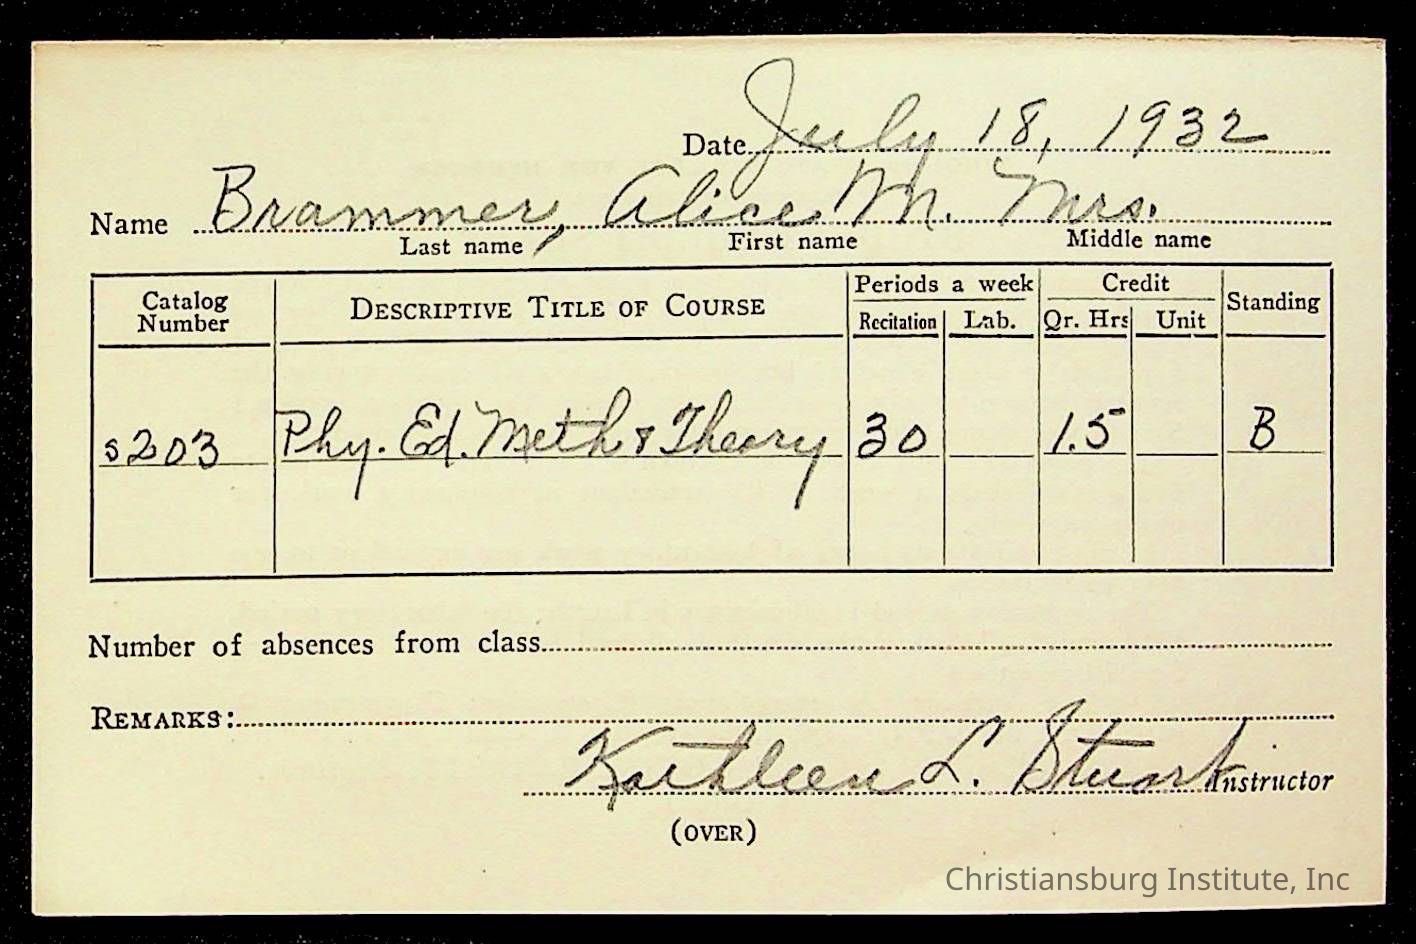 Date July 18, 1932
Name Brammer, Alice M. Mrs.
Last name First name Middle name
Catalog Number DESCRIPTIVE TITLE OF COURSE Periods a week Credit Standing
Recitation Lab. Qr. Hrs Unit
s203 Phy. Ed. Meth & Theory 30 1.5 B
Number of absences from class
REMARKS:
Kathleen L. Stuart Instructor
(OVER)
Christiansburg Institute, Inc